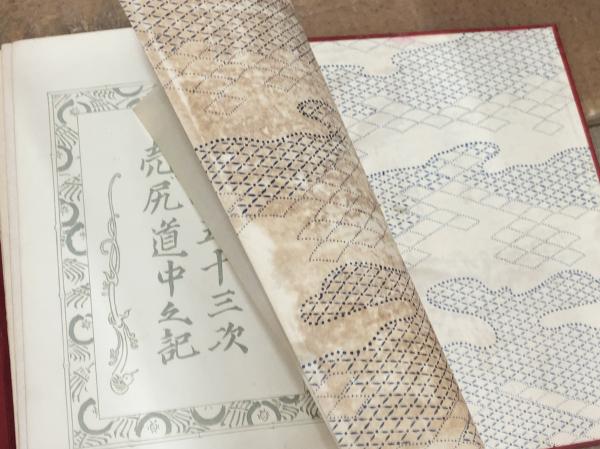 五十三次
売尻道中之記